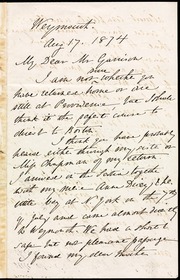 Weymouth.
Aug 17. 1874
My Dear Mr Garrison
I am not sure whether you
have returned home or are
still at Providence. But I should
think it the safest course to
direct to Boston.
I think you have probably
heard either through my sister or
Miss Chapman of my return
I arrived in the Scotia together
with my niece Anne
at N. York on the
of July and came almost directly
to Weymouth. We had a short &
safe but not pleasant passage
I found my dear